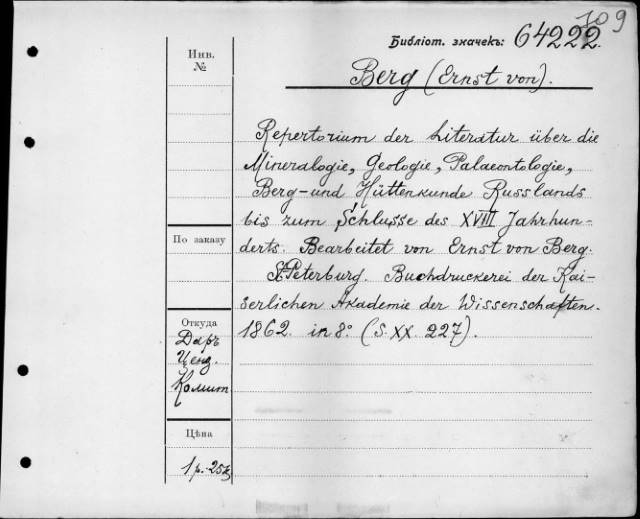 109
Библіот. значекъ: 64222.
Инв.
№
Berg (Ernst von).
Repertorium der Literatur über die
Mineralogie, Geologie, Palaeontologie,
Berg- und Hüttenkunde Russlands
bis zum Schlusse des XVIII Jahrhun-
derts. Bearbeitet von Ernst von Berg.
St. Peterburg. Buchdruckerei der Kai-
serlichen Akademie der Wissenschaften.
1862. in 8° (S. XX. 227).
По заказу
Откуда
Даръ
Ценз.
Комит
Цѣна
1 р. 25к